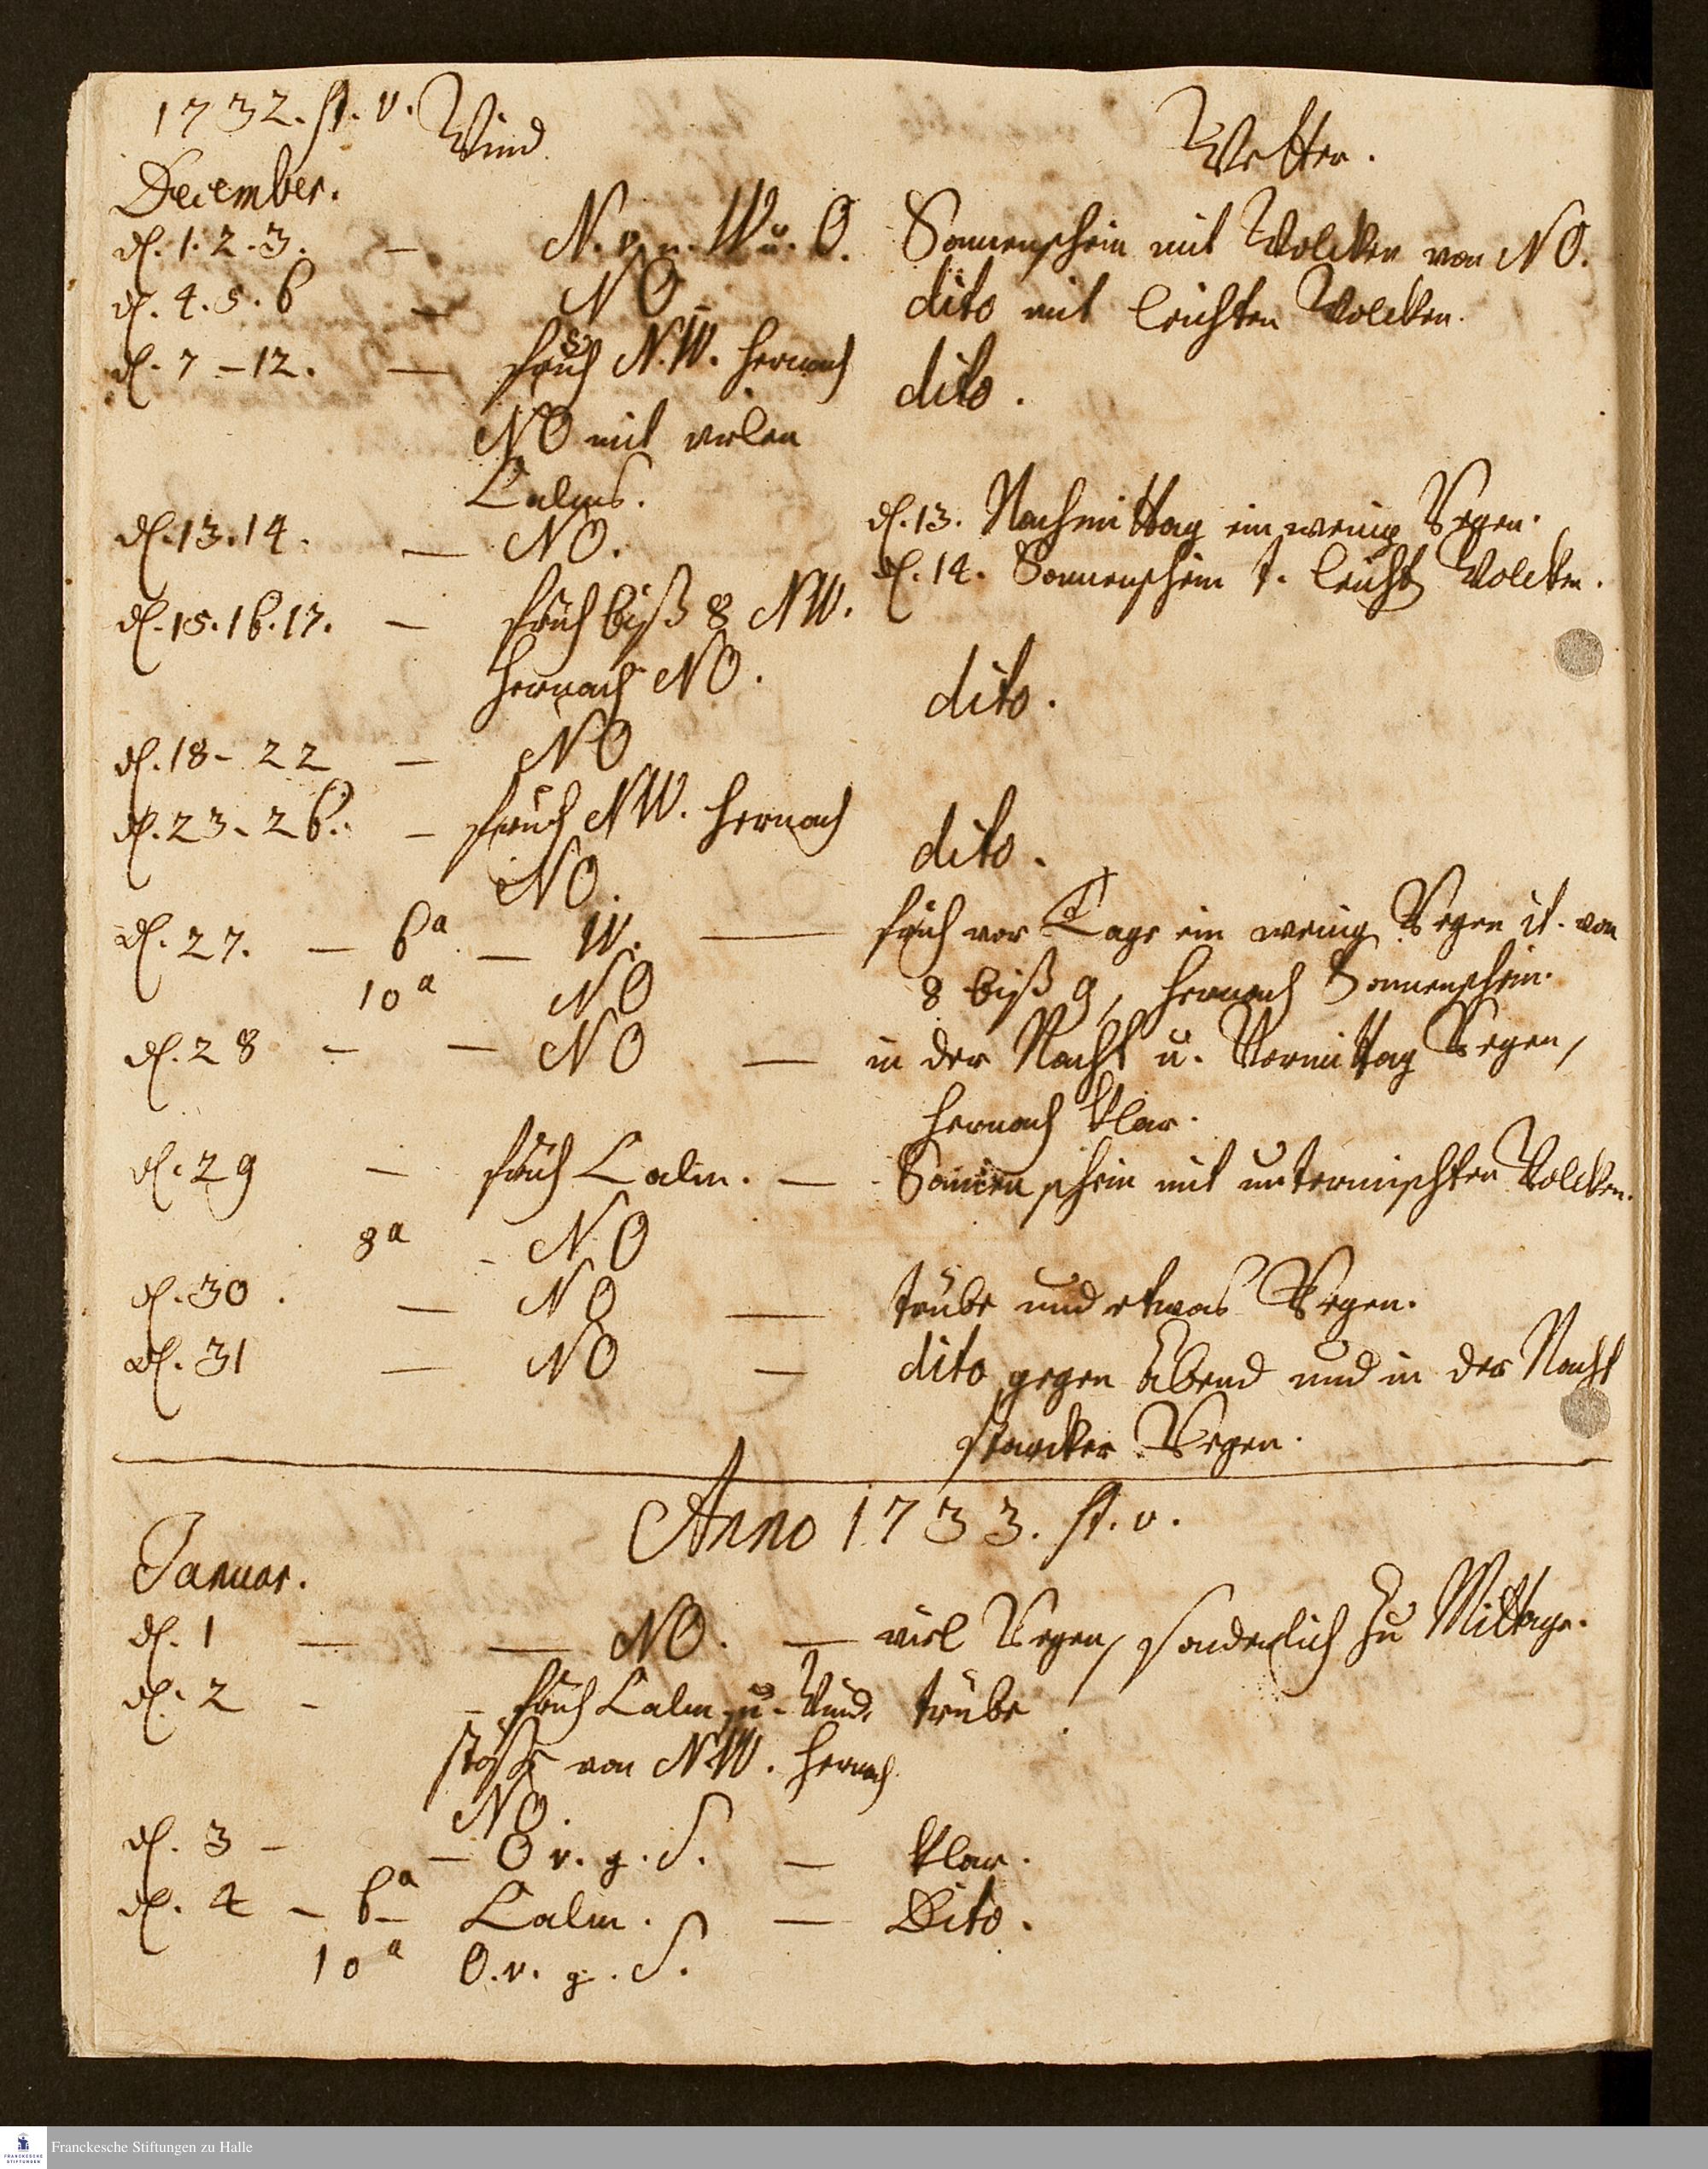 1732. st. v. Wind Wetter.
December.
d. 1. 2. 3. — N. v. u. W u. O. Sonnenschein mit Wolcken von NO.
d. 4. 5. 6 — NO — dito mit leichten Wolcken.
d. 7 – 12. — früh N.W. hernach dito.
NO mit vielen
Calms.
d. 13. 14. — NO. d. 13. Nachmittag ein wenig Regen.
d. 14. Sonnenschein leicht Wolcken.
d. 15. 16. 17. — früh biß 8 NW.
hernach NO. dito.
d. 18 – 22 — NO
d. 23 – 26. — früh NW. hernach dito.
NO.
d. 27. — 6a — W. — früh vor Tage ein wenig Regen it. von
10a NO 8 biß 9, hernach Sonnenschein.
d. 28 – — NO — in der Nacht u. Vormittag Regen,
hernach klar.
d. 29 — früh Calm. — Sonnenschein mit untermischten Wolcken.
8a – NO
d. 30. — NO — trübe und etwas Regen.
d. 31 — NO — dito gegen Abend und in der Nacht
starcker Regen.
Anno 1733. st. v.
Januar.
d. 1 — — NO. — viel Regen, sonderlich zu Mittage.
d. 2 – – früh Calm u. Wind- trübe
stöße von NW. hernach
NO.
d. 3 – — O v. g. S. — klar.
d. 4 – 6a – Calm. — Dito.
10a O. v. g. S.
FRANCKESCHE
STIFTUNGEN
Franckesche Stiftungen zu Halle